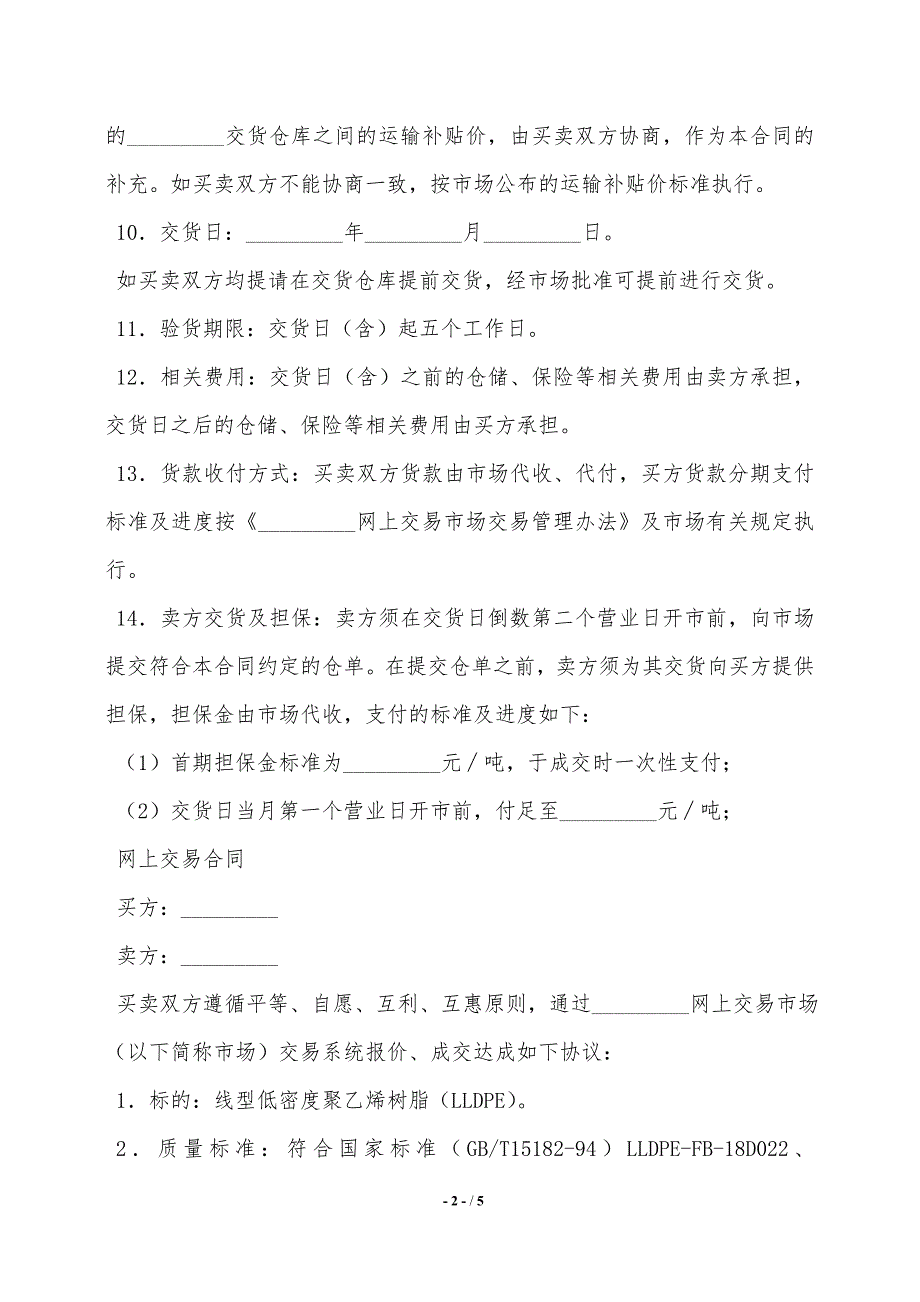 的_________交货仓库之间的运输补贴价，由买卖双方协商，作为本合同的
补充。如买卖双方不能协商一致，按市场公布的运输补贴价标准执行。
10．交货日：_________年_________月_________日。
如买卖双方均提请在交货仓库提前交货，经市场批准可提前进行交货。
11．验货期限：交货日（含）起五个工作日。
12．相关费用：交货日（含）之前的仓储、保险等相关费用由卖方承担，
交货日之后的仓储、保险等相关费用由买方承担。
13．货款收付方式：买卖双方货款由市场代收、代付，买方货款分期支付
标准及进度按《_________网上交易市场交易管理办法》及市场有关规定执
行。
14．卖方交货及担保：卖方须在交货日倒数第二个营业日开市前，向市场
提交符合本合同约定的仓单。在提交仓单之前，卖方须为其交货向买方提供
担保，担保金由市场代收，支付的标准及进度如下：
（1）首期担保金标准为_________元／吨，于成交时一次性支付；
（2）交货日当月第一个营业日开市前，付足至_________元／吨；
网上交易合同
买方：_________
卖方：_________
买卖双方遵循平等、自愿、互利、互惠原则，通过_________网上交易市场
（以下简称市场）交易系统报价、成交达成如下协议：
1．标的：线型低密度聚乙烯树脂（LLDPE）。
2．质量标准：符合国家标准（GB/T15182-94）LLDPE-FB-18D022、
- 2 - / 5